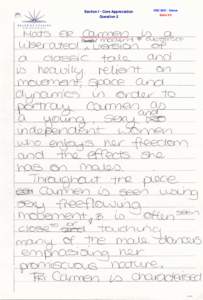 Section I - Core Appreciation
Question 2
HSC 2001 - Dance
Band 5/6
BOARD OF STUDIES
Mats Ek Carmen is a
liberated version of
a classic tale and
is heavily relient on
movement, space and
dynamics in order to
portray Carmen as
a young, sexy and
independent women
who enjoys her freedom
and the effects she
has on males.
Throughout the piece
Carmen is seen using
sexy freeflowing
movement, & is often seen
close or touching
many of the male dancers
emphasising her
promiscuous nature.
Carmen is characterised